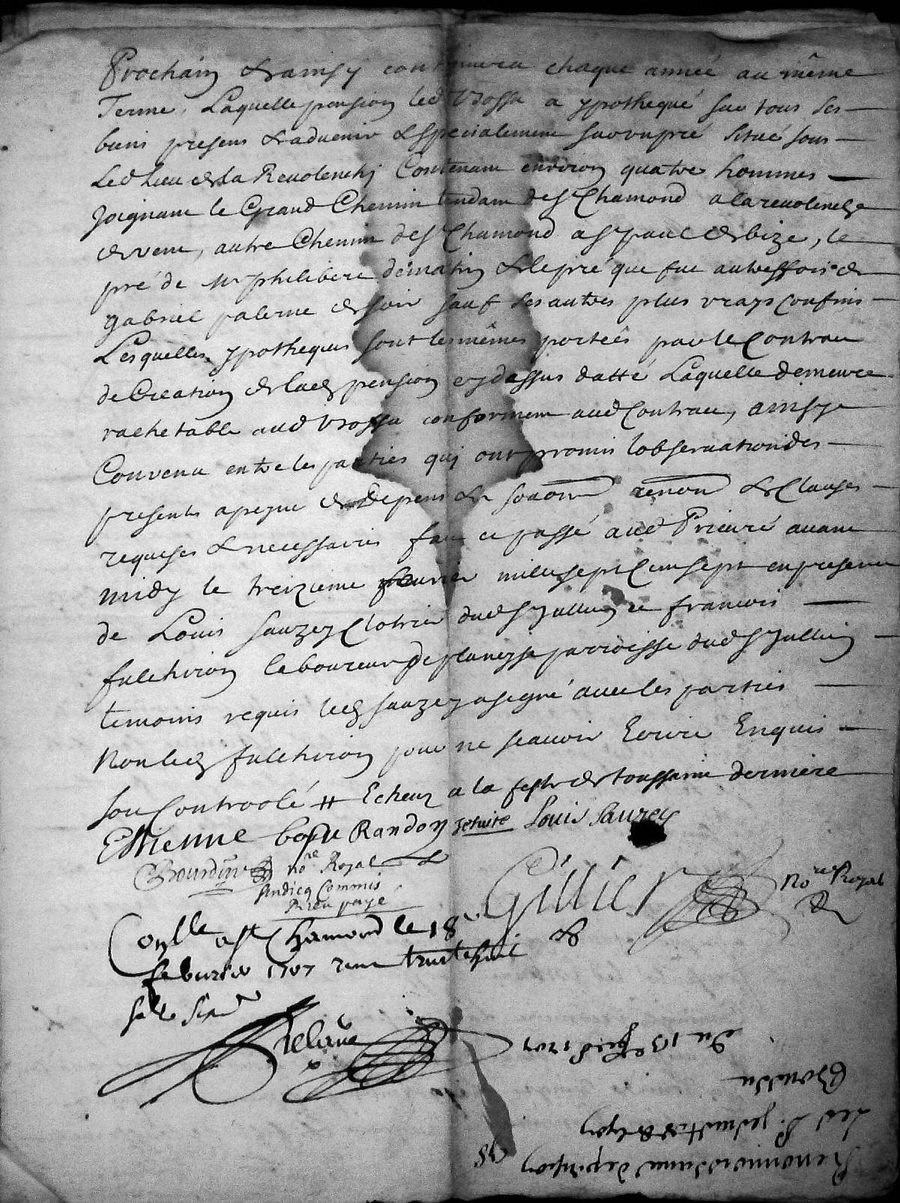 Prochain & ainsy continuera chaque année au même
Terme, Laquelle pension led Vrossa a ypothequé sur tous ses
biens presens & advenir & specialement sur un pré situé sous
Led lieu de la Revolenchy Contenant environ quatre hommes
Joignant le Grand Chemin tendant de St Chamond a la revolenche
de vent, autre Chemin de St Chamond a St paul de bize, le
pré de Mr philibert dematin & le pré que fut autreffois de
gabriel palerne de soir sauf ses autres plus vrays confins
Lesquelles ypotheques sont les mêmes portées par le Contrau
de Creation de lad pension cydessus datté Laquelle demeure
rachetable aud Vrossa conformem aud Contrau, ainsy
Convenu entre les parties qui ont promis lobservation des
presents a peyne de Depens & soaom renon & Clauses
requises & necessaires fait et passé aud Prieuré avant
midy le treizieme fevrier mil sept Cent sept en presence
de Louis Sauzey Clotrier dud St Jullien & francois
fulchiron laboureur de planeysse parroisse dud St Jullien
temoins requis led Sauzey a signé avec les parties
Non led fulchiron pour ne scavoir Ecrire Enquis
soit Controolé # Echeuz a la feste de toussaint derniere
Etienne Randon jesuite Louis Sauzey
Bourdin no.re Royal
Sindicq Commis
Rien payé
Gillier No.re Royal
Con.lle a St Chamond le 18e
febvrier 1707 receu trente huit
Delaune
Du 13e feb 1707
Renouvoidune de pention
98